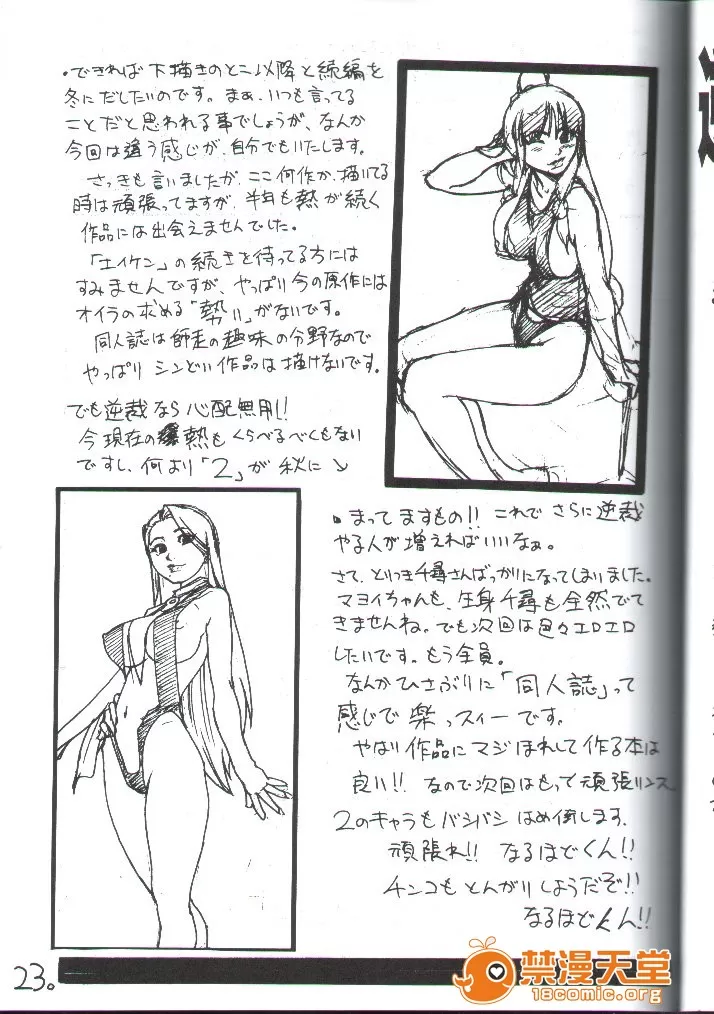 ・できれば下描きのとこ以降と続編を
冬にだしたいのです。まぁ、いつも言ってる
ことだと思われる事でしょうが、なんか
今回は違う感じが、自分でもいたします。
さっきも言いましたが、ここ何作か、描いてる
時は頑張ってますが、半年も熱が続く
作品には出会えませんでした。
「エイケン」の続きを待ってる方には
すみませんですが、やっぱり今の原作には
オイラの求める「勢い」がないです。
同人誌は師走の趣味の分野なので
やっぱり シンどい作品は描けないです。
でも逆裁なら心配無用!!
今現在の熱もくらべるべくもない
ですし、何より「2」が秋に
・まってますもの!! これで さらに逆裁
やる人が増えればいいなぁ。
さて、とりつき千尋さんばっかりになってしまいました。
マヨイちゃんも、生身千尋も全然でて
きませんね。でも次回は色々エロエロ
したいです。もう全員。
なんかひさぶりに「同人誌」って
感じで楽っスィーです。
やはり作品にマジほれして作る本は
良い!! なので次回はもって頑張リンス
2のキャラもバシバシはめ倒します。
頑張れ!! なるほどくん!!
チンコもとんがりしようだぞ!!
なるほどくん!!
23。
禁漫天堂
18comic.org